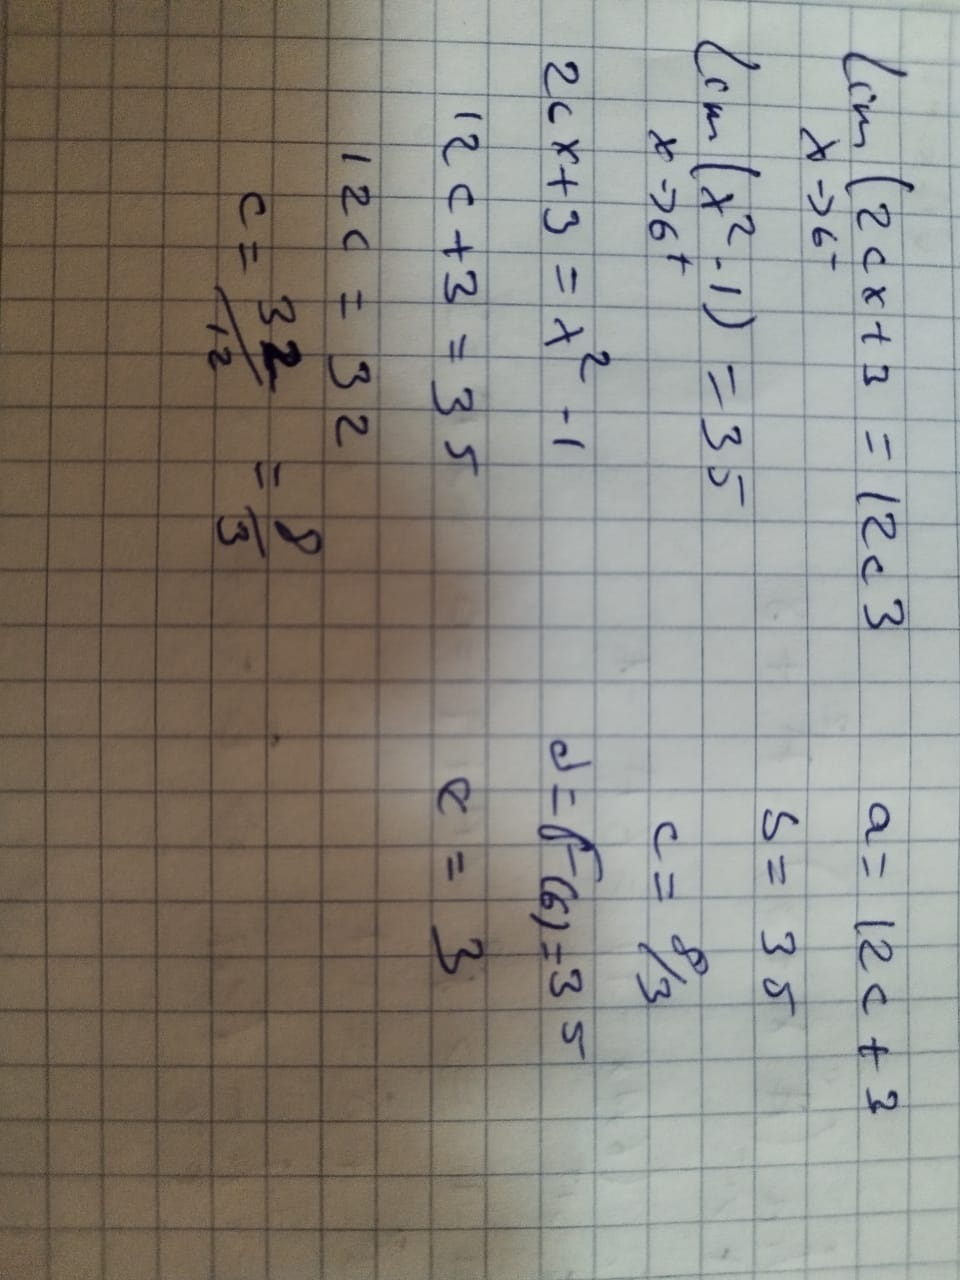 lim (2cx+3 = 12c3
x→6⁻
lim (x²-1) = 35
x→6⁺
2cx+3 = x²-1
12c+3 = 35
12c = 32
c = 32/12 = 8/3
a = 12c+3
b = 35
c = 8/3
d = f(6) = 35
e = 3